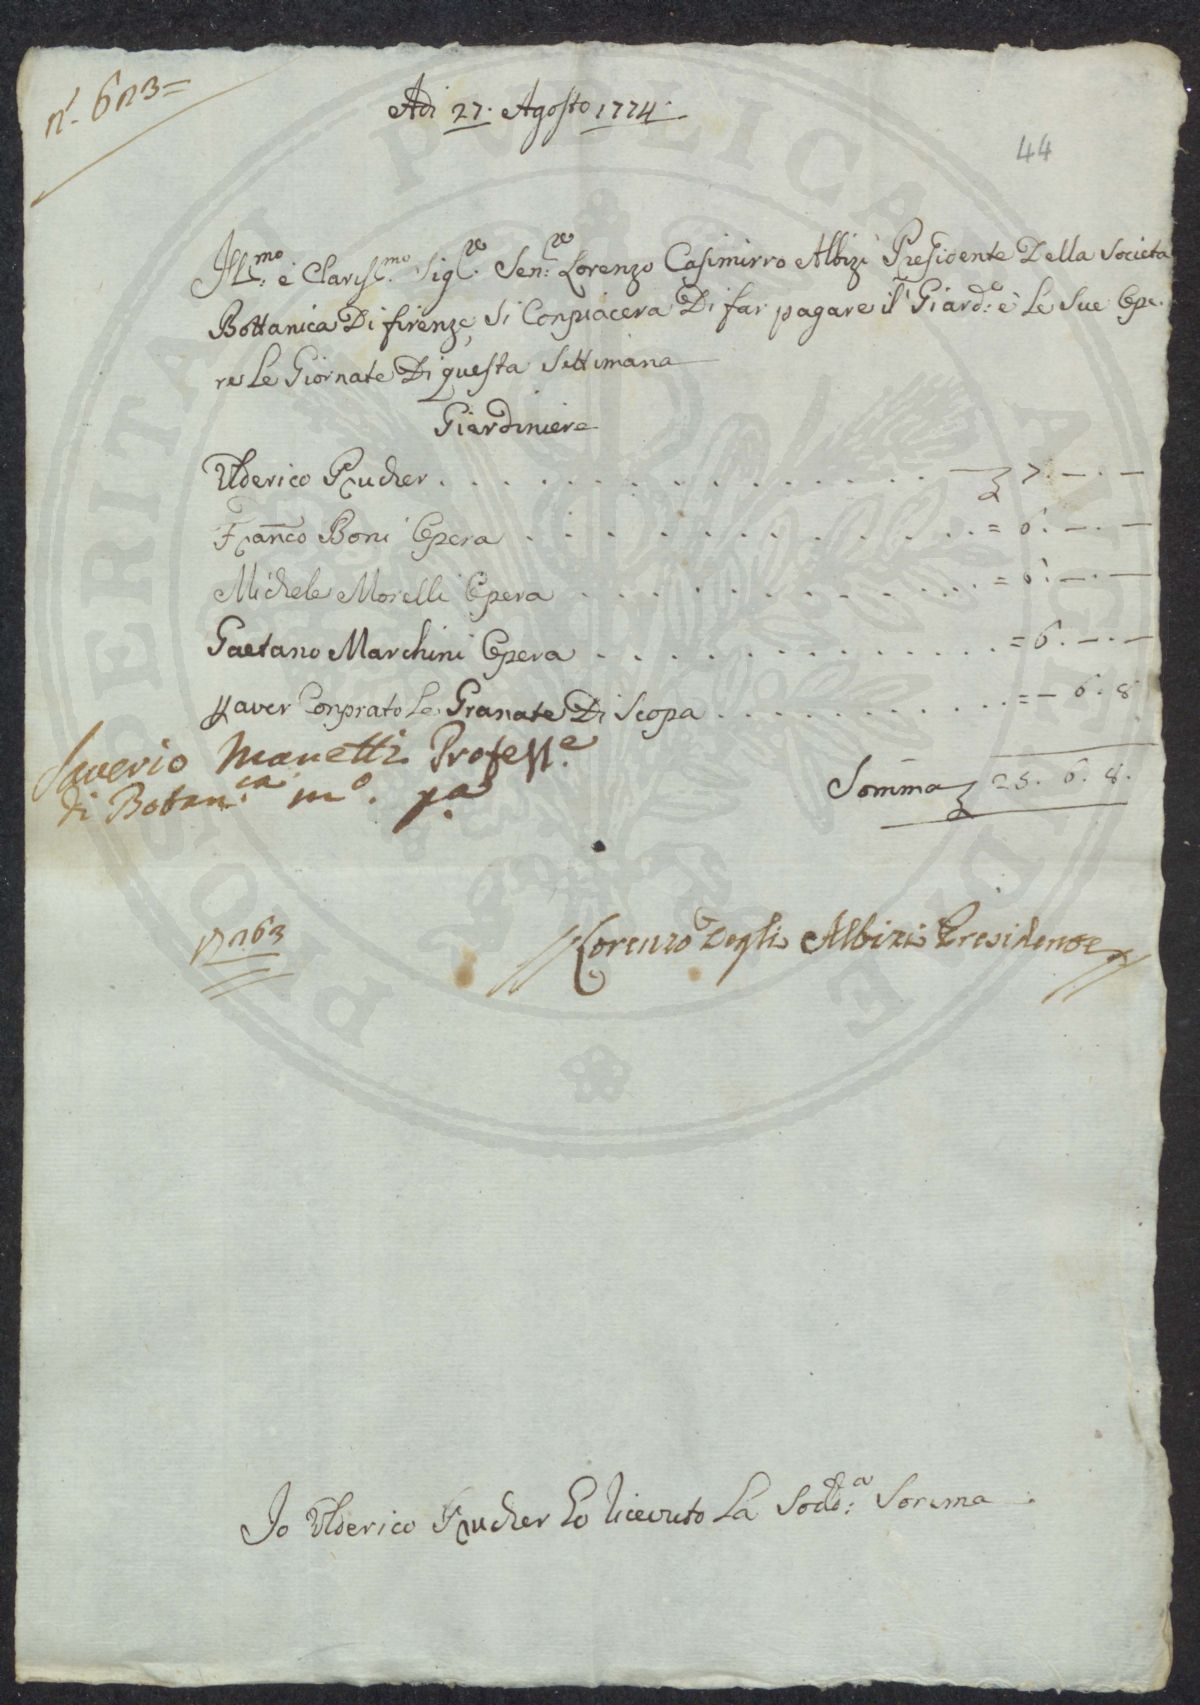 n.º 623=
Adi 27. Agosto 1774.
44
Ill.mo e Clariss.mo Sig.re Sen.re Lorenzo Casimirro Albizi Presidente Della Societa
Bottanica Di firenze, Si Conpiacera Di far pagare il Giard.e e Le Sue Ope-
re Le Giornate Di questa Settimana
Giardiniere
Ulderico Prucher . . . . . . . . . . . . . . . . 7. — . —
Fran.co Boni Opera . . . . . . . . . . . . . = 6. — . —
Michele Morelli Opera . . . . . . . . . . . . . = 6. — . —
Gaetano Marchini Opera . . . . . . . . . . . . . . = 6. — . —
p aver Conprato Le Granate Di Scopa . . . . . . . . . . . . = — 6. 8
Saverio Manetti Profess.e
di Botan.ca m.o p.a
Somma 25. 6. 8.
Lorenzo Degli Albizi Presidente
Io Ulderico Prucher Ho Ricevuto La Sod.a Somma
PROSPERITATI PUBLICAE AUGENDAE